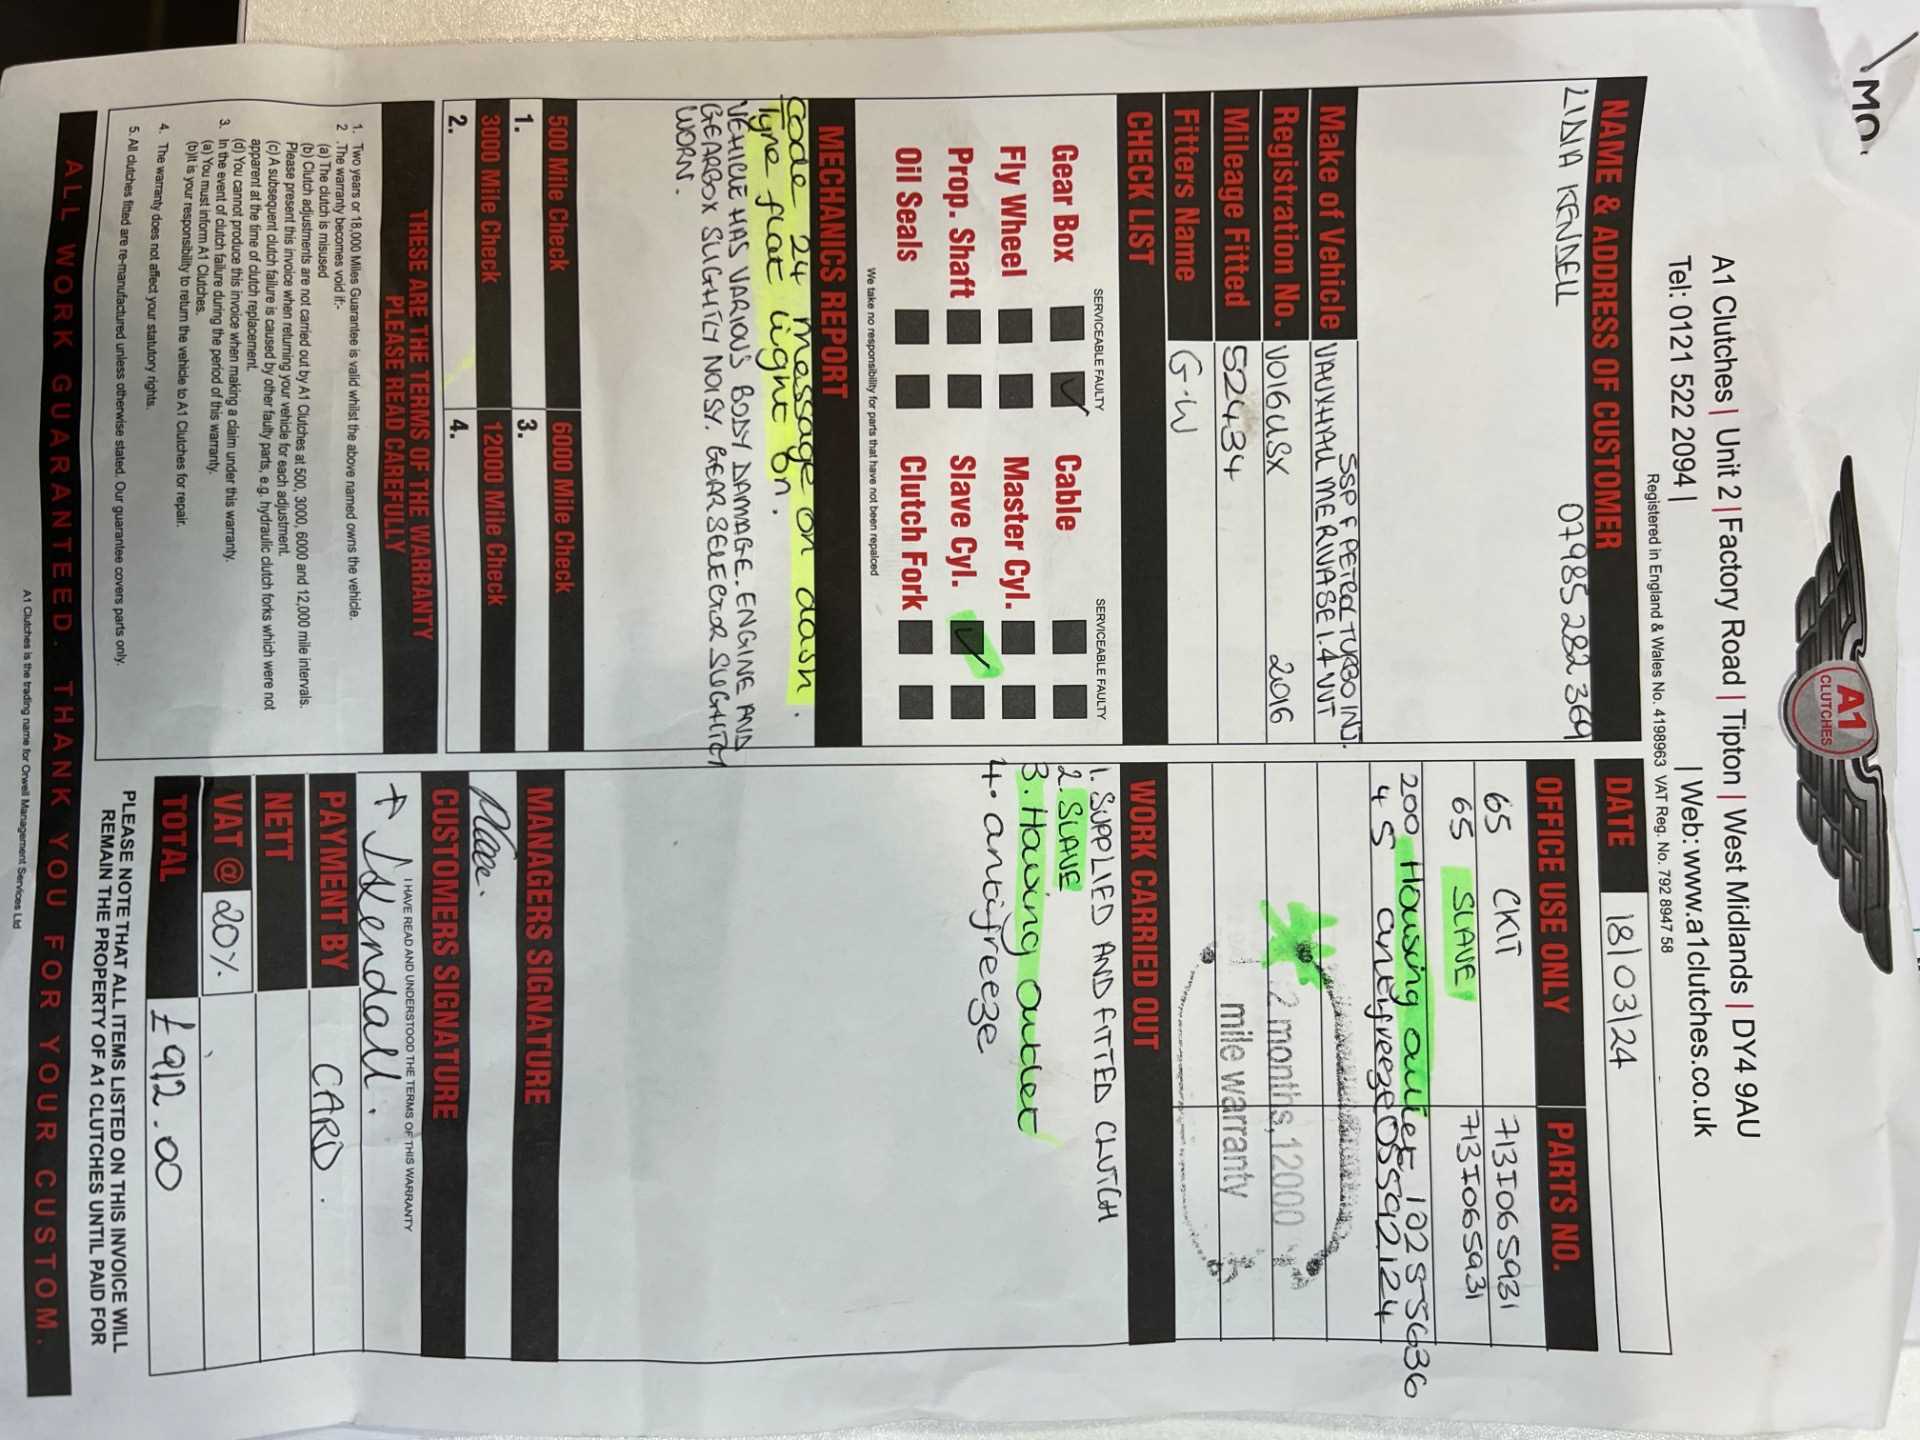 MO
A1
CLUTCHES
A1 Clutches| Unit 2|Factory Road| Tipton| West Midlands| DY4 9AU
Tel: 0121 522 2094| |Web: www.a1clutches.co.uk
Registered in England & Wales No. 4198963 VAT Reg. No. 792 8947 58
NAME & ADDRESS OF CUSTOMER
07985 282 369
Make of Vehicle
5SP F PETROL TURBO INJ.
VAUXHALL MERIVA SE 1.4 VVT
Registration No. VO16USX 2016
Mileage Fitted 52434
Fitters Name G-W
CHECK LIST
SERVICEABLE FAULTY SERVICEABLE FAULTY
Gear Box ✓ Cable
Fly Wheel Master Cyl.
Prop. Shaft Slave Cyl. ✓
Oil Seals Clutch Fork
We take no responsibility for parts that have not been repalced
MECHANICS REPORT
Code 24 message on dash.
Tyre flat light on.
VEHICLE HAS VARIOUS BODY DAMAGE. ENGINE AND
GEARBOX SLIGHTLY NOISY. GEAR SELECTOR SLIGHTLY
WORN.
500 Mile Check 6000 Mile Check
1. 3.
3000 Mile Check 12000 Mile Check
2. 4.
THESE ARE THE TERMS OF THE WARRANTY
PLEASE READ CAREFULLY
1. Two years or 18,000 Miles Guarantee is valid whilst the above named owns the vehicle.
2 .The warranty becomes void if:-
(a) The clutch is misused
(b) Clutch adjustments are not carried out by A1 Clutches at 500, 3000, 6000 and 12,000 mile intervals.
Please present this invoice when returning your vehicle for each adjustment.
(c) A subsequent clutch failure is caused by other faulty parts, e.g. hydraulic clutch forks which were not
apparent at the time of clutch replacement.
(d) You cannot produce this invoice when making a claim under this warranty.
3. In the event of clutch failure during the period of this warranty.
(a) You must inform A1 Clutches.
(b)It is your responsibility to return the vehicle to A1 Clutches for repair.
4. The warranty does not affect your statutory rights.
5. All clutches fitted are re-manufactured unless otherwise stated. Our guarantee covers parts only.
DATE 18/03/24
OFFICE USE ONLY PARTS NO.
65 CKIT 713I065931
65 SLAVE 713I065931
200 Housing outlet 102S-S6636
45 antifreeze 055912124
12 months,12000
mile warranty
WORK CARRIED OUT
1. SUPPLIED AND FITTED CLUTCH
2. SLAVE
3. Housing Outlet
4. antifreeze
MANAGERS SIGNATURE
CUSTOMERS SIGNATURE
I HAVE READ AND UNDERSTOOD THE TERMS OF THIS WARRANTY
Kendall.
PAYMENT BY CARD.
NETT
VAT @ 20%
TOTAL £912.00
PLEASE NOTE THAT ALL ITEMS LISTED ON THIS INVOICE WILL
REMAIN THE PROPERTY OF A1 CLUTCHES UNTIL PAID FOR
ALL WORK GUARANTEED. THANK YOU FOR YOUR CUSTOM.
A1 Clutches is the trading name for Orwell Management Services Ltd